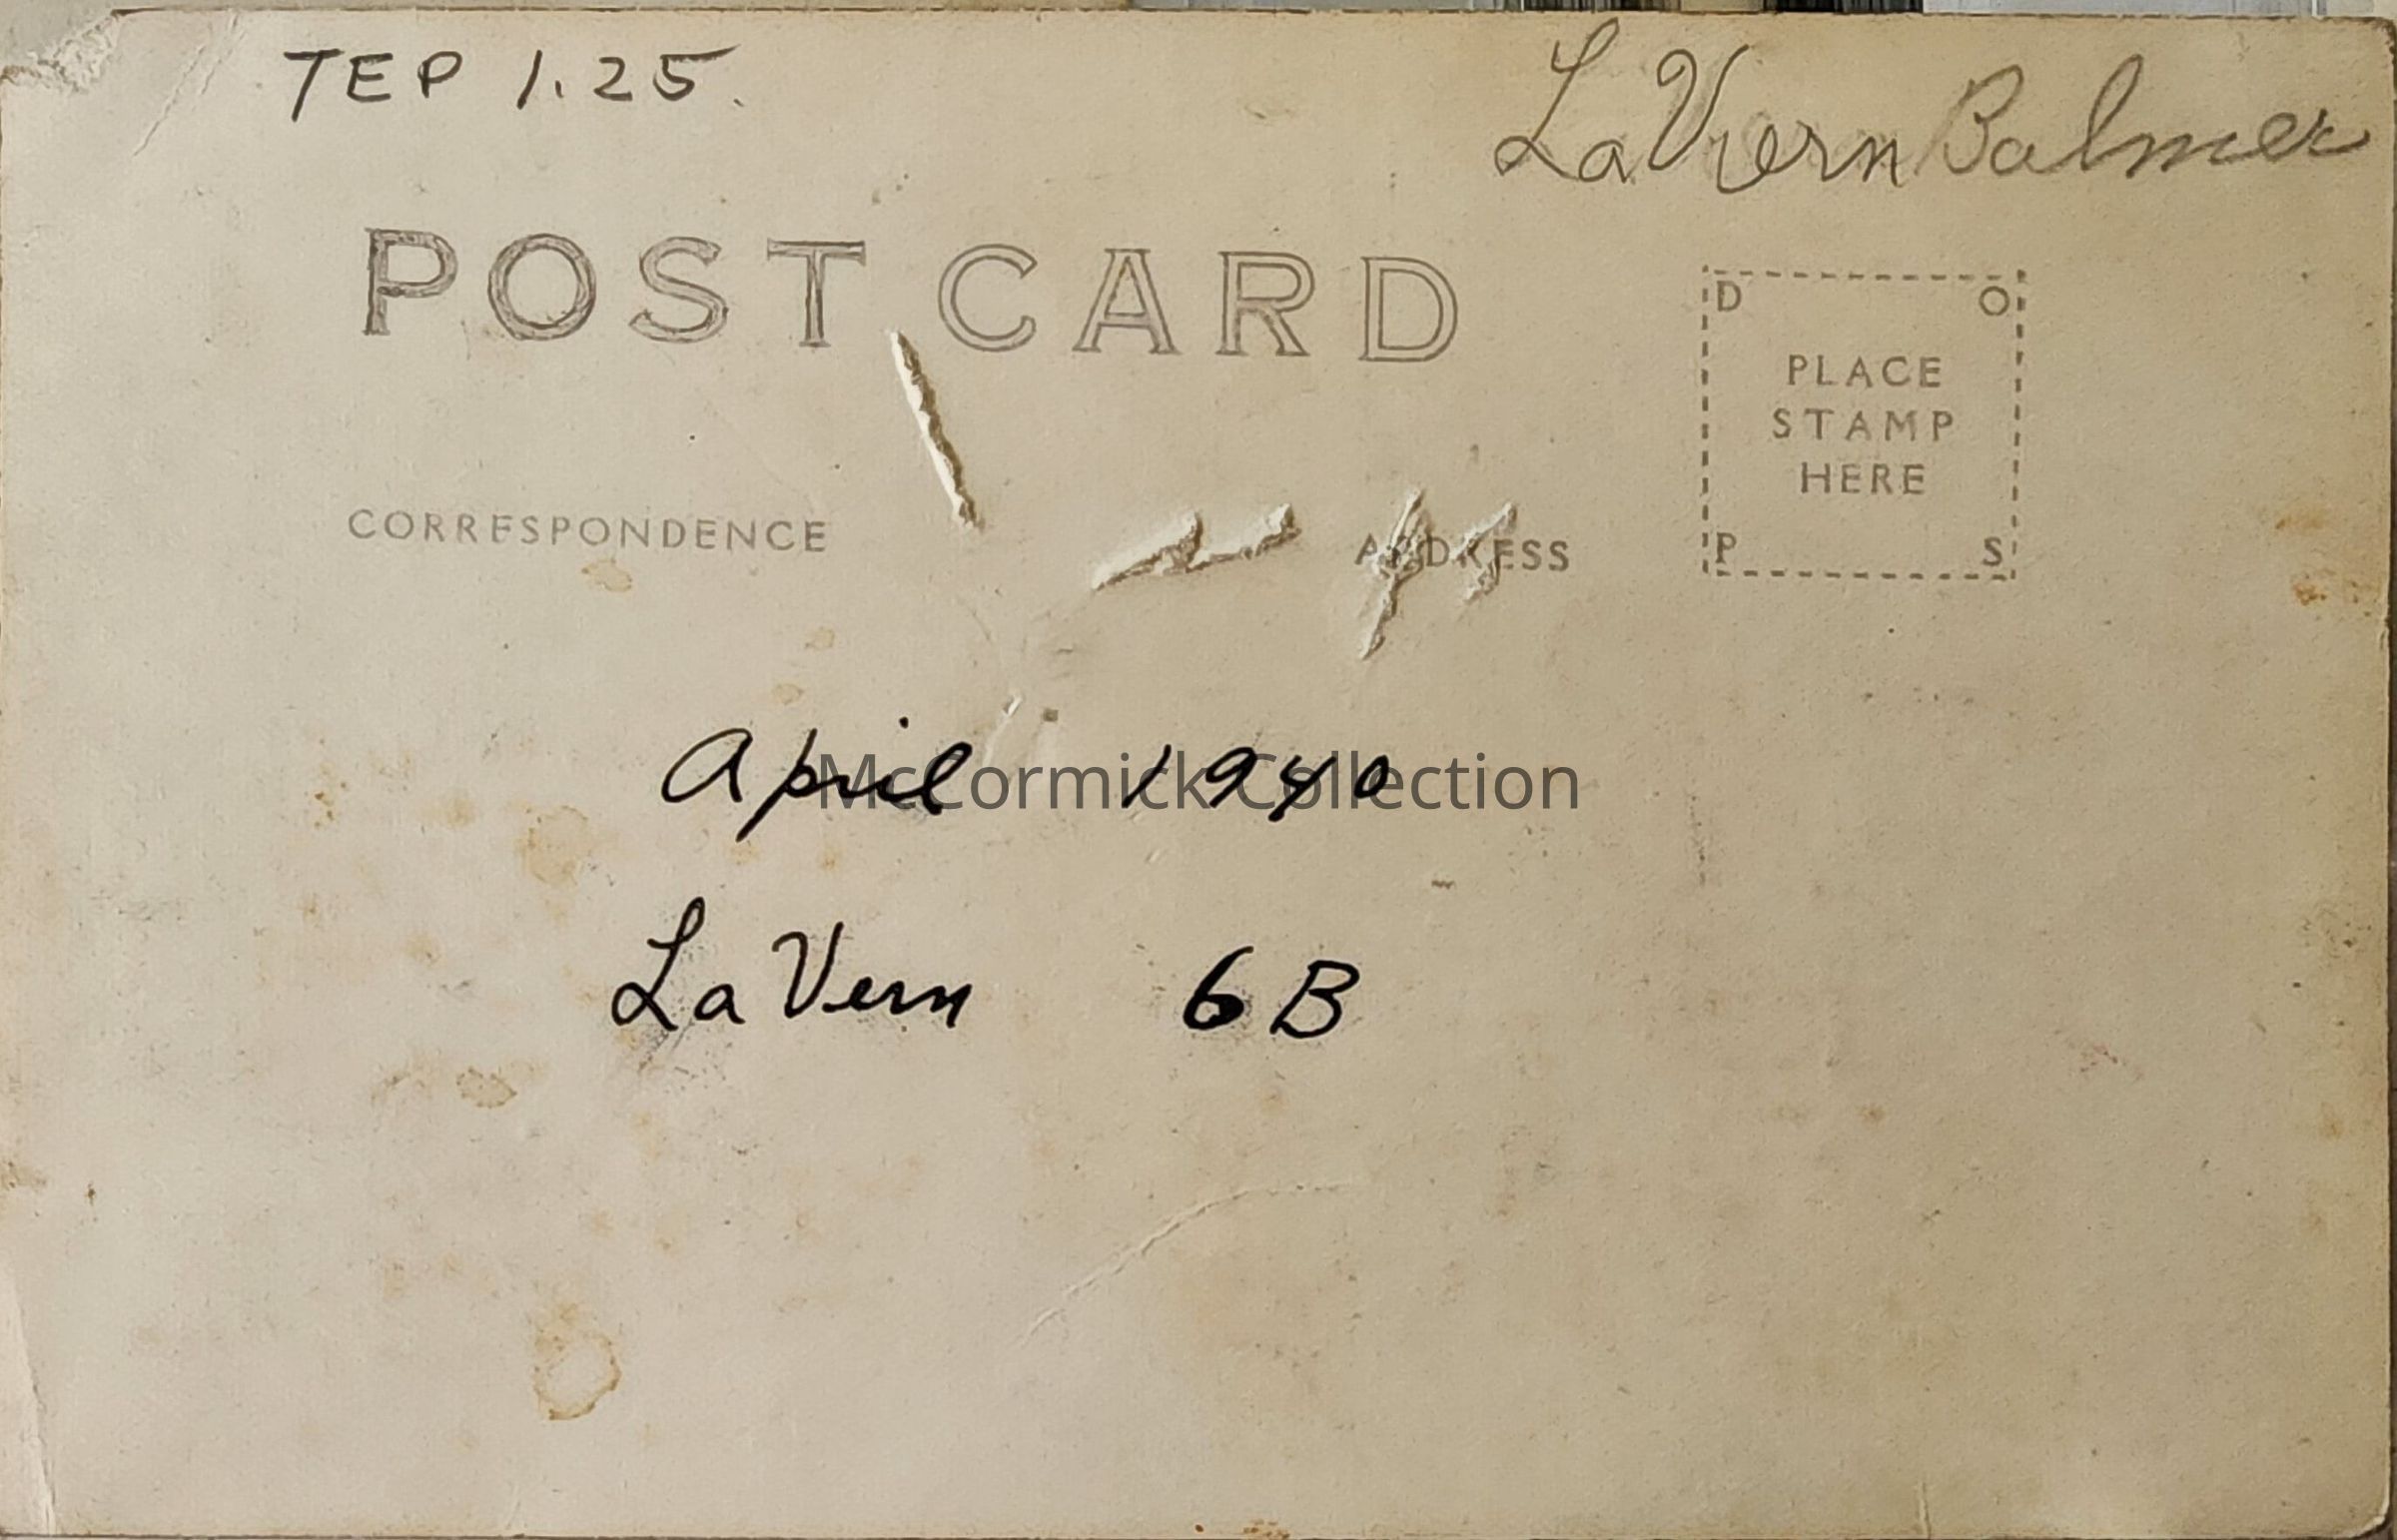 TEP 1.25.
LaVern Balmer
POST CARD
D O
PLACE
STAMP
HERE
P S
CORRESPONDENCE
ADDRESS
April 1940
McCormick Collection
LaVern 6B